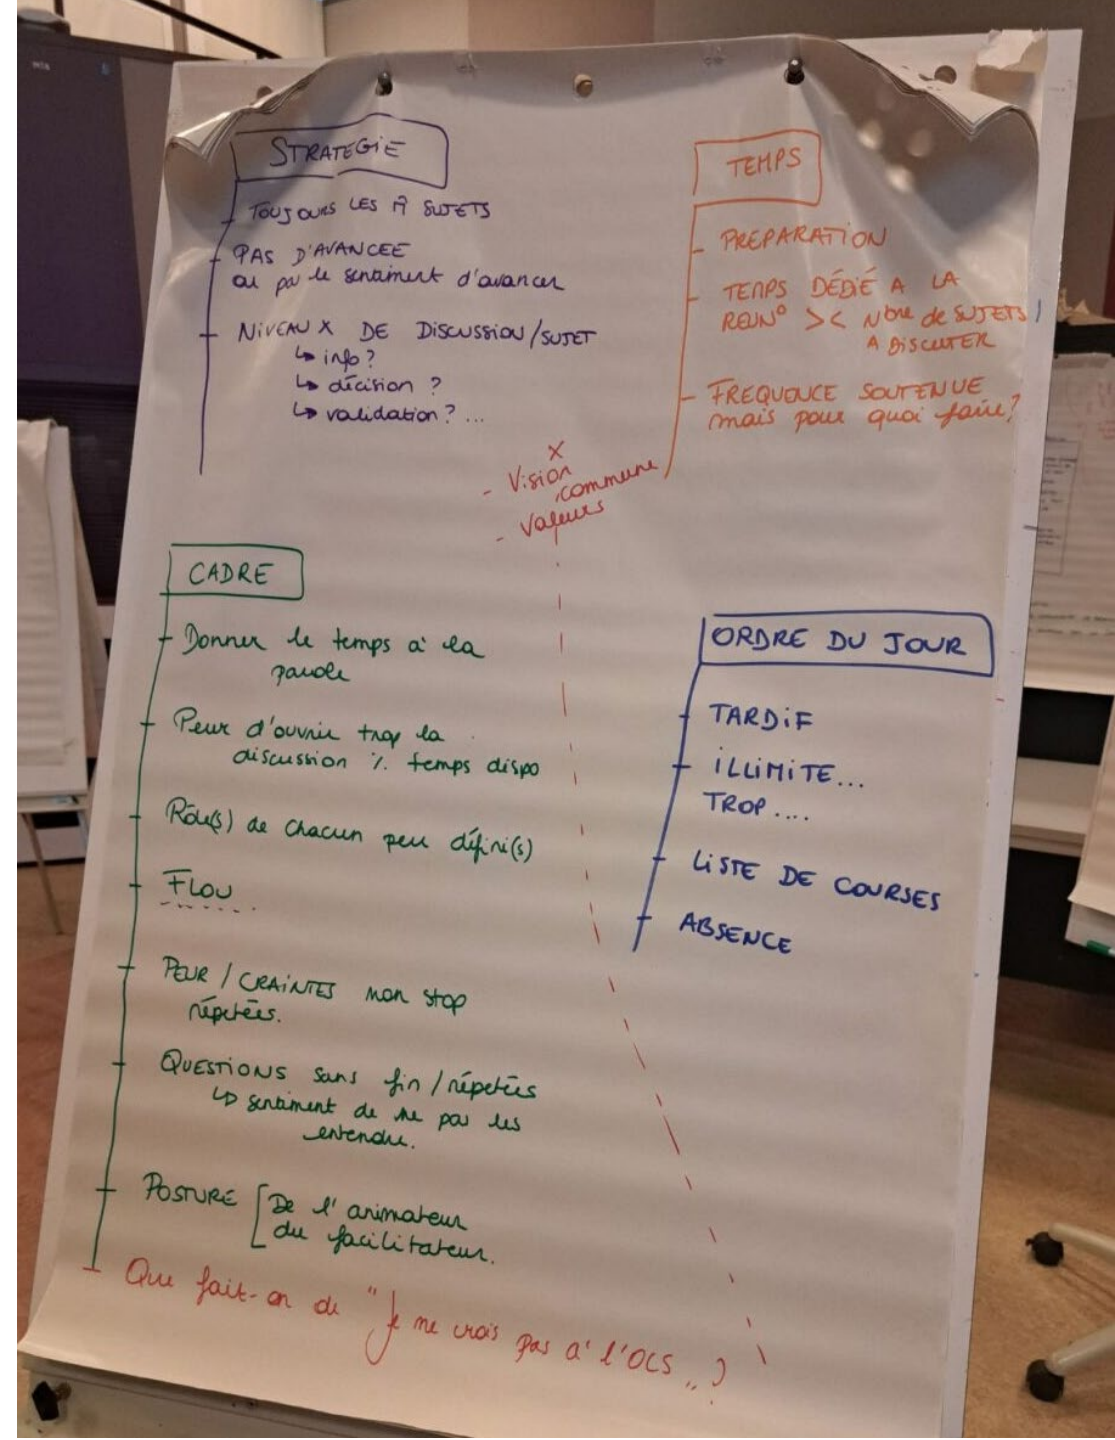 STRATEGIE
TOUJOURS LES M̂ SUJETS
PAS D'AVANCEE
ou pas le sentiment d'avancer
NIVEAUX DE DISCUSSION/SUJET
↳ info?
↳ décision ?
↳ validation? ...
TEMPS
PREPARATION
TEMPS DÉDIÉ A LA
REUN° >< Nbre de SUJETS
A DISCUTER
FREQUENCE SOUTENUE
mais pour quoi faire?
x
- Vision
commune
- Valeurs
CADRE
Donner le temps à la
parole
Peur d'ouvrir trop la
discussion % temps dispo
Rôle(s) de chacun peu défini(s)
FLOU
PEUR / CRAINTES non stop
répétées.
QUESTIONS sans fin / répétées
↳ sentiment de ne pas les
entendre.
POSTURE [De l'animateur
du facilitateur.
Que fait-on de "Je ne crois pas à l'OCS" ?
ORDRE DU JOUR
TARDIF
ILLIMITE...
TROP....
LISTE DE COURSES
ABSENCE